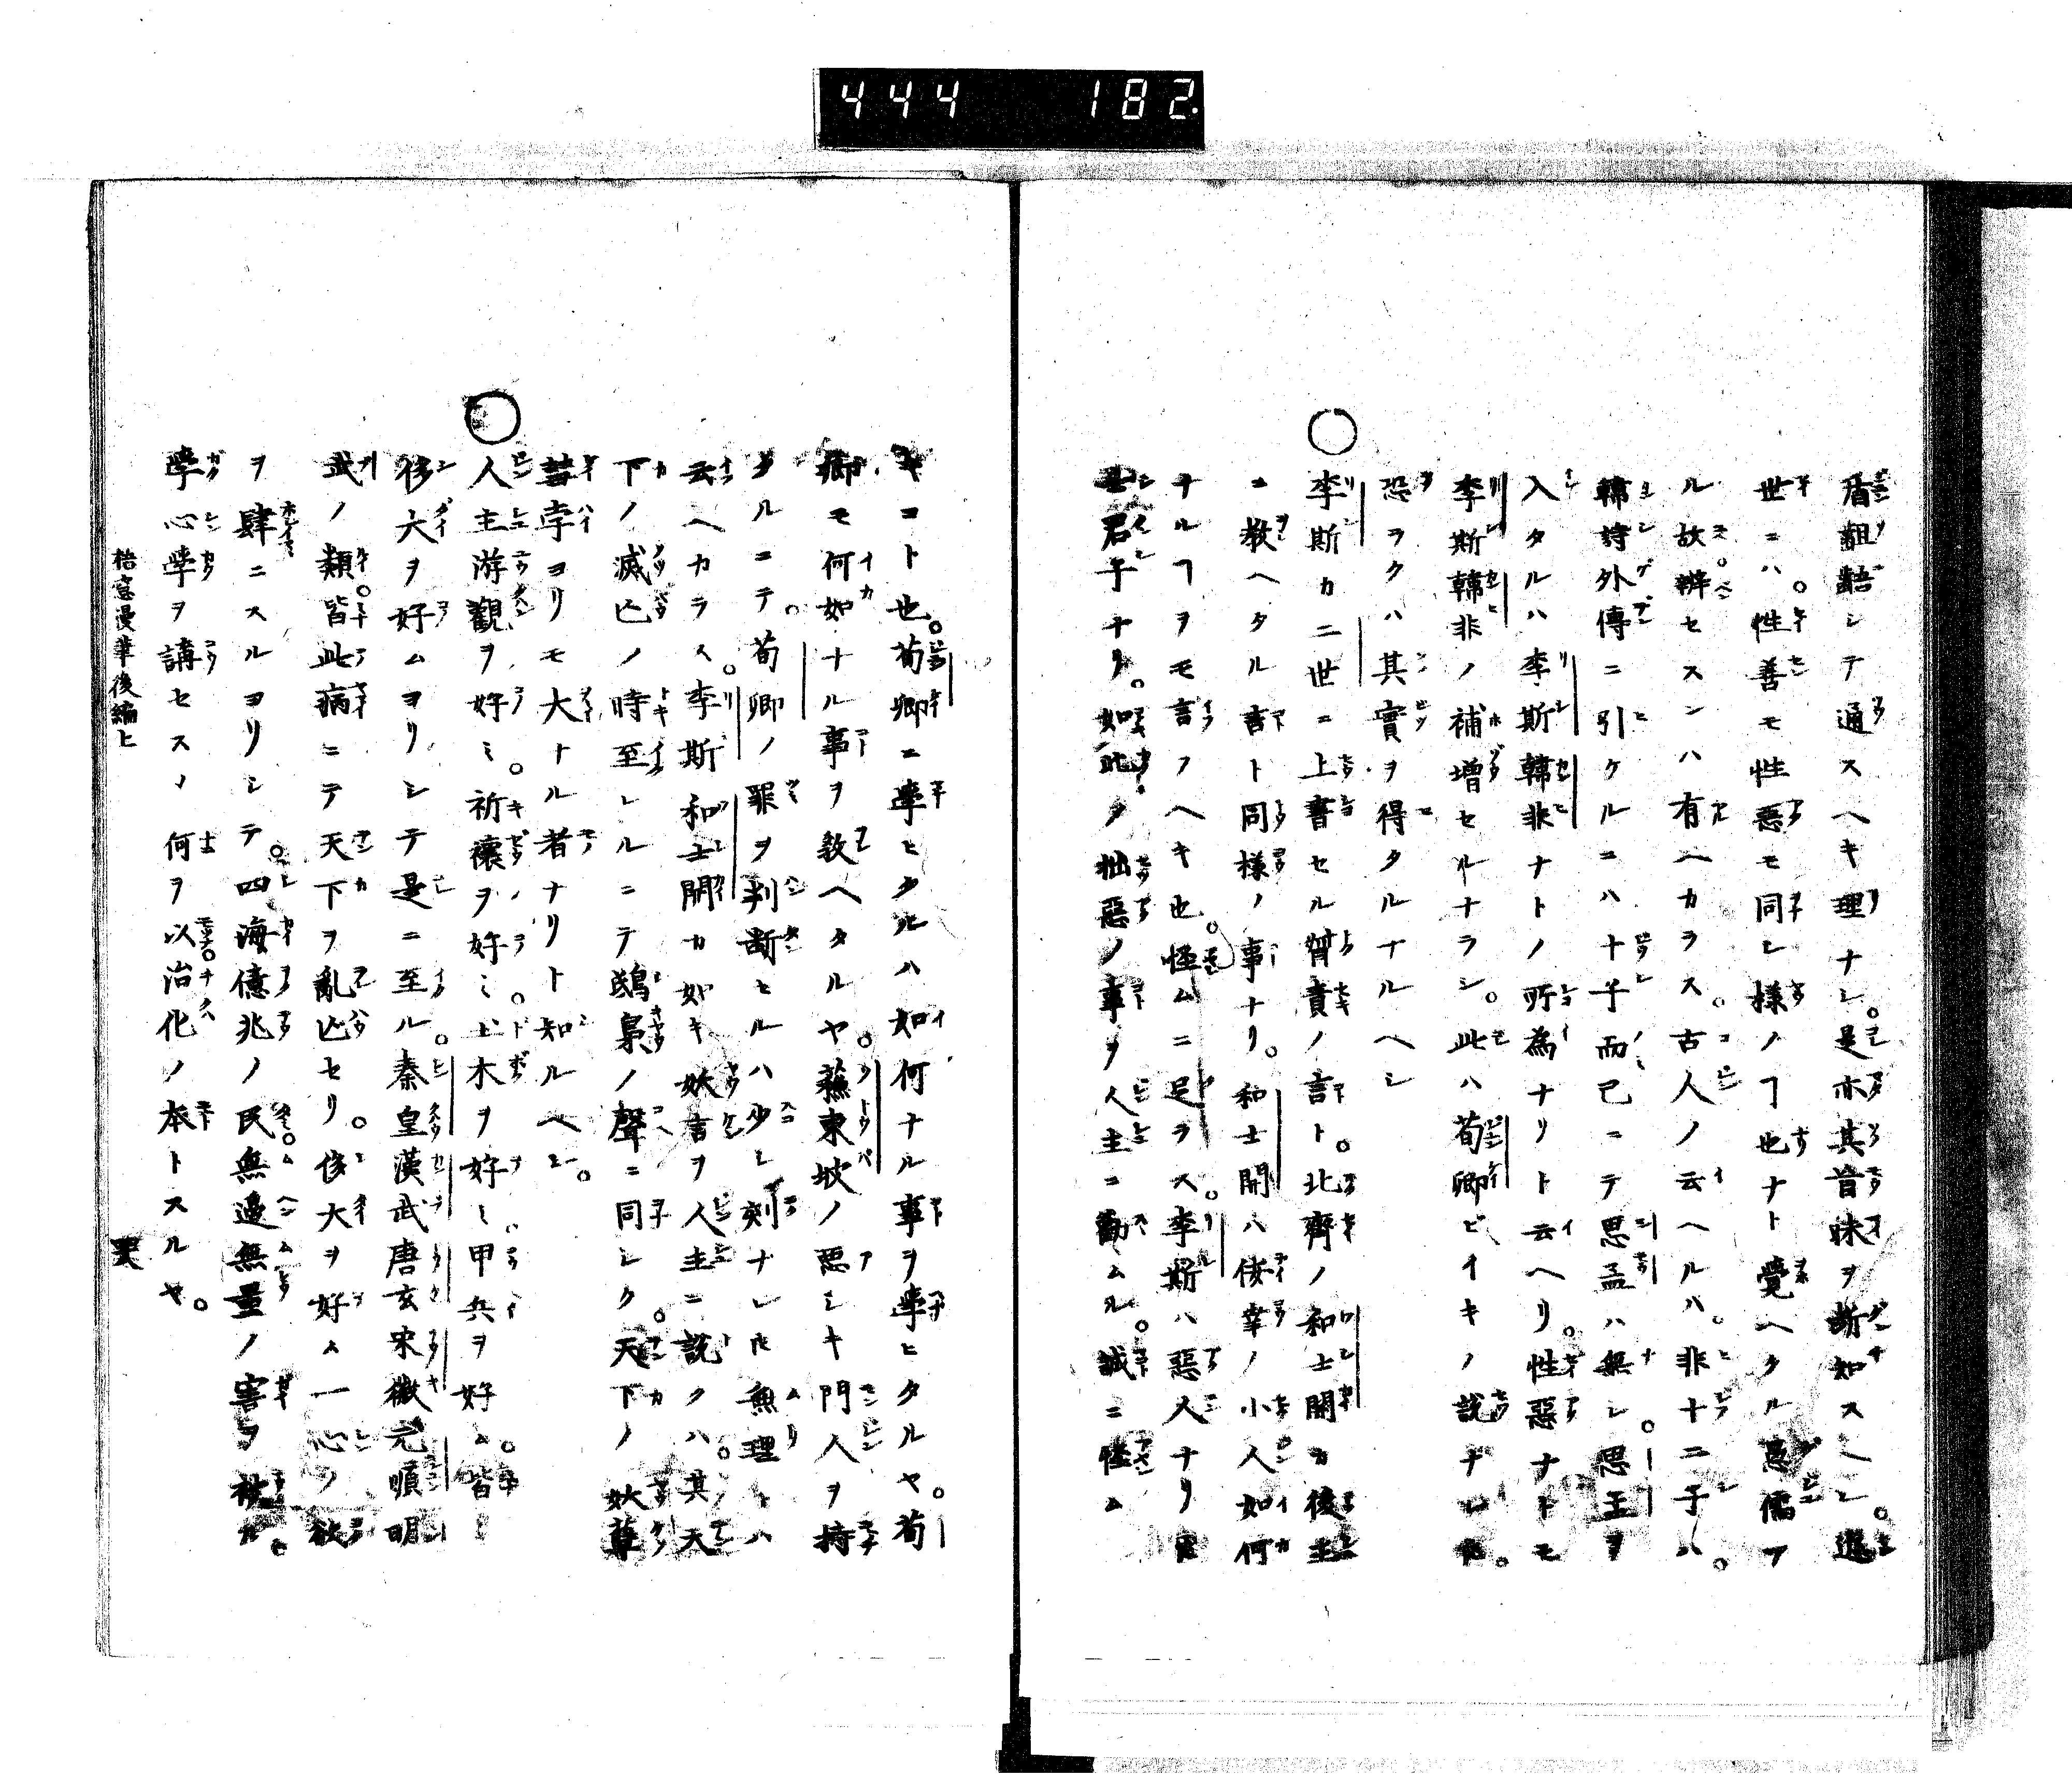 444 182
盾齟齬シテ通スヘキ理ナシ。是亦其首昧ヲ断知スヘシ。進
世ニハ。性善モ性惡モ同シ様ノヿ也ナト覺ヘタル愚儒ア
ル故辨セスンハ有ヘカラス。古人ノ云ヘルハ。非十二子ハ。
韓詩外傳ニ引ケルニハ十子而已ニテ思孟ハ無シ。思王ヲ
入タルハ李斯韓非ナトノ所為ナリト云ヘリ。性惡ナトモ
李斯韓非ノ補増セルナラシ。此ハ荀卿ビイキノ説ナレ𪜈。
恐ラクハ其實ヲ得タルナルヘシ
○李斯カ二世ニ上書セル督責ノ言ト。北齊ノ和士開カ後主
ニ教ヘタル言ト同様ノ事ナリ。和士開ハ倖幸ノ小人如何
ナルヿヲモ言フヘキ也。怪ムニ足ラス。李斯ハ惡人ナリ
君子ナリ。如此タ拙惡ノ事ヲ人主ニ勸ムル。誠ニ怪ム
キコト也。荀卿ニ學ヒタルハ如何ナル事ヲ學ヒタルヤ。荀
卿モ何如ナル事ヲ敎ヘタルヤ。蘓東坡ノ惡シキ門人ヲ持
タルニテ。荀卿ノ罪ヲ判断セルハ少シ刻ナレ𪜈無理トハ
云ヘカラス。李斯和士開カ如キ妖言ヲ人主ニ説クハ。其天
下ノ滅亾ノ時至レルニテ鴟梟ノ聲ニ同シク。天下ノ妖孽
彗孛ヨリモ大ナル者ナリト知ルヘシ。
○人主游觀ヲ好ミ。祈禳ヲ好ミ。土木ヲ好ミ。甲兵ヲ好ム。皆
侈大ヲ好ムヨリシテ是ニ至ル。秦皇漢武唐玄宋徽元順明
武ノ類。皆此病ニテ天下ヲ亂亾セリ。侈大ヲ好ム一心ノ欲
ヲ肆ニスルヨリシテ。四海億兆ノ民無邊無量ノ害ヲ被ル。
學心學ヲ講セスノ何ヲ以治化ノ本トスルヤ。
梧窓漫筆後編上